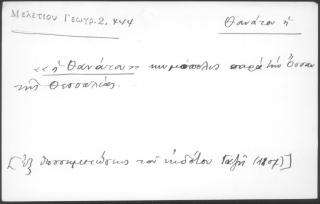 Μελετίου Γεωγρ. 2. 444
Θανάτου ἡ
« ἡ Θανάτου » κωμόπολις παρὰ τὴν Ὄσσαν
τῆς Θεσσαλίας.
[ἐξ ὑποσημειώσεως τοῦ ἐκδότου Γαζῆ (18ος)]